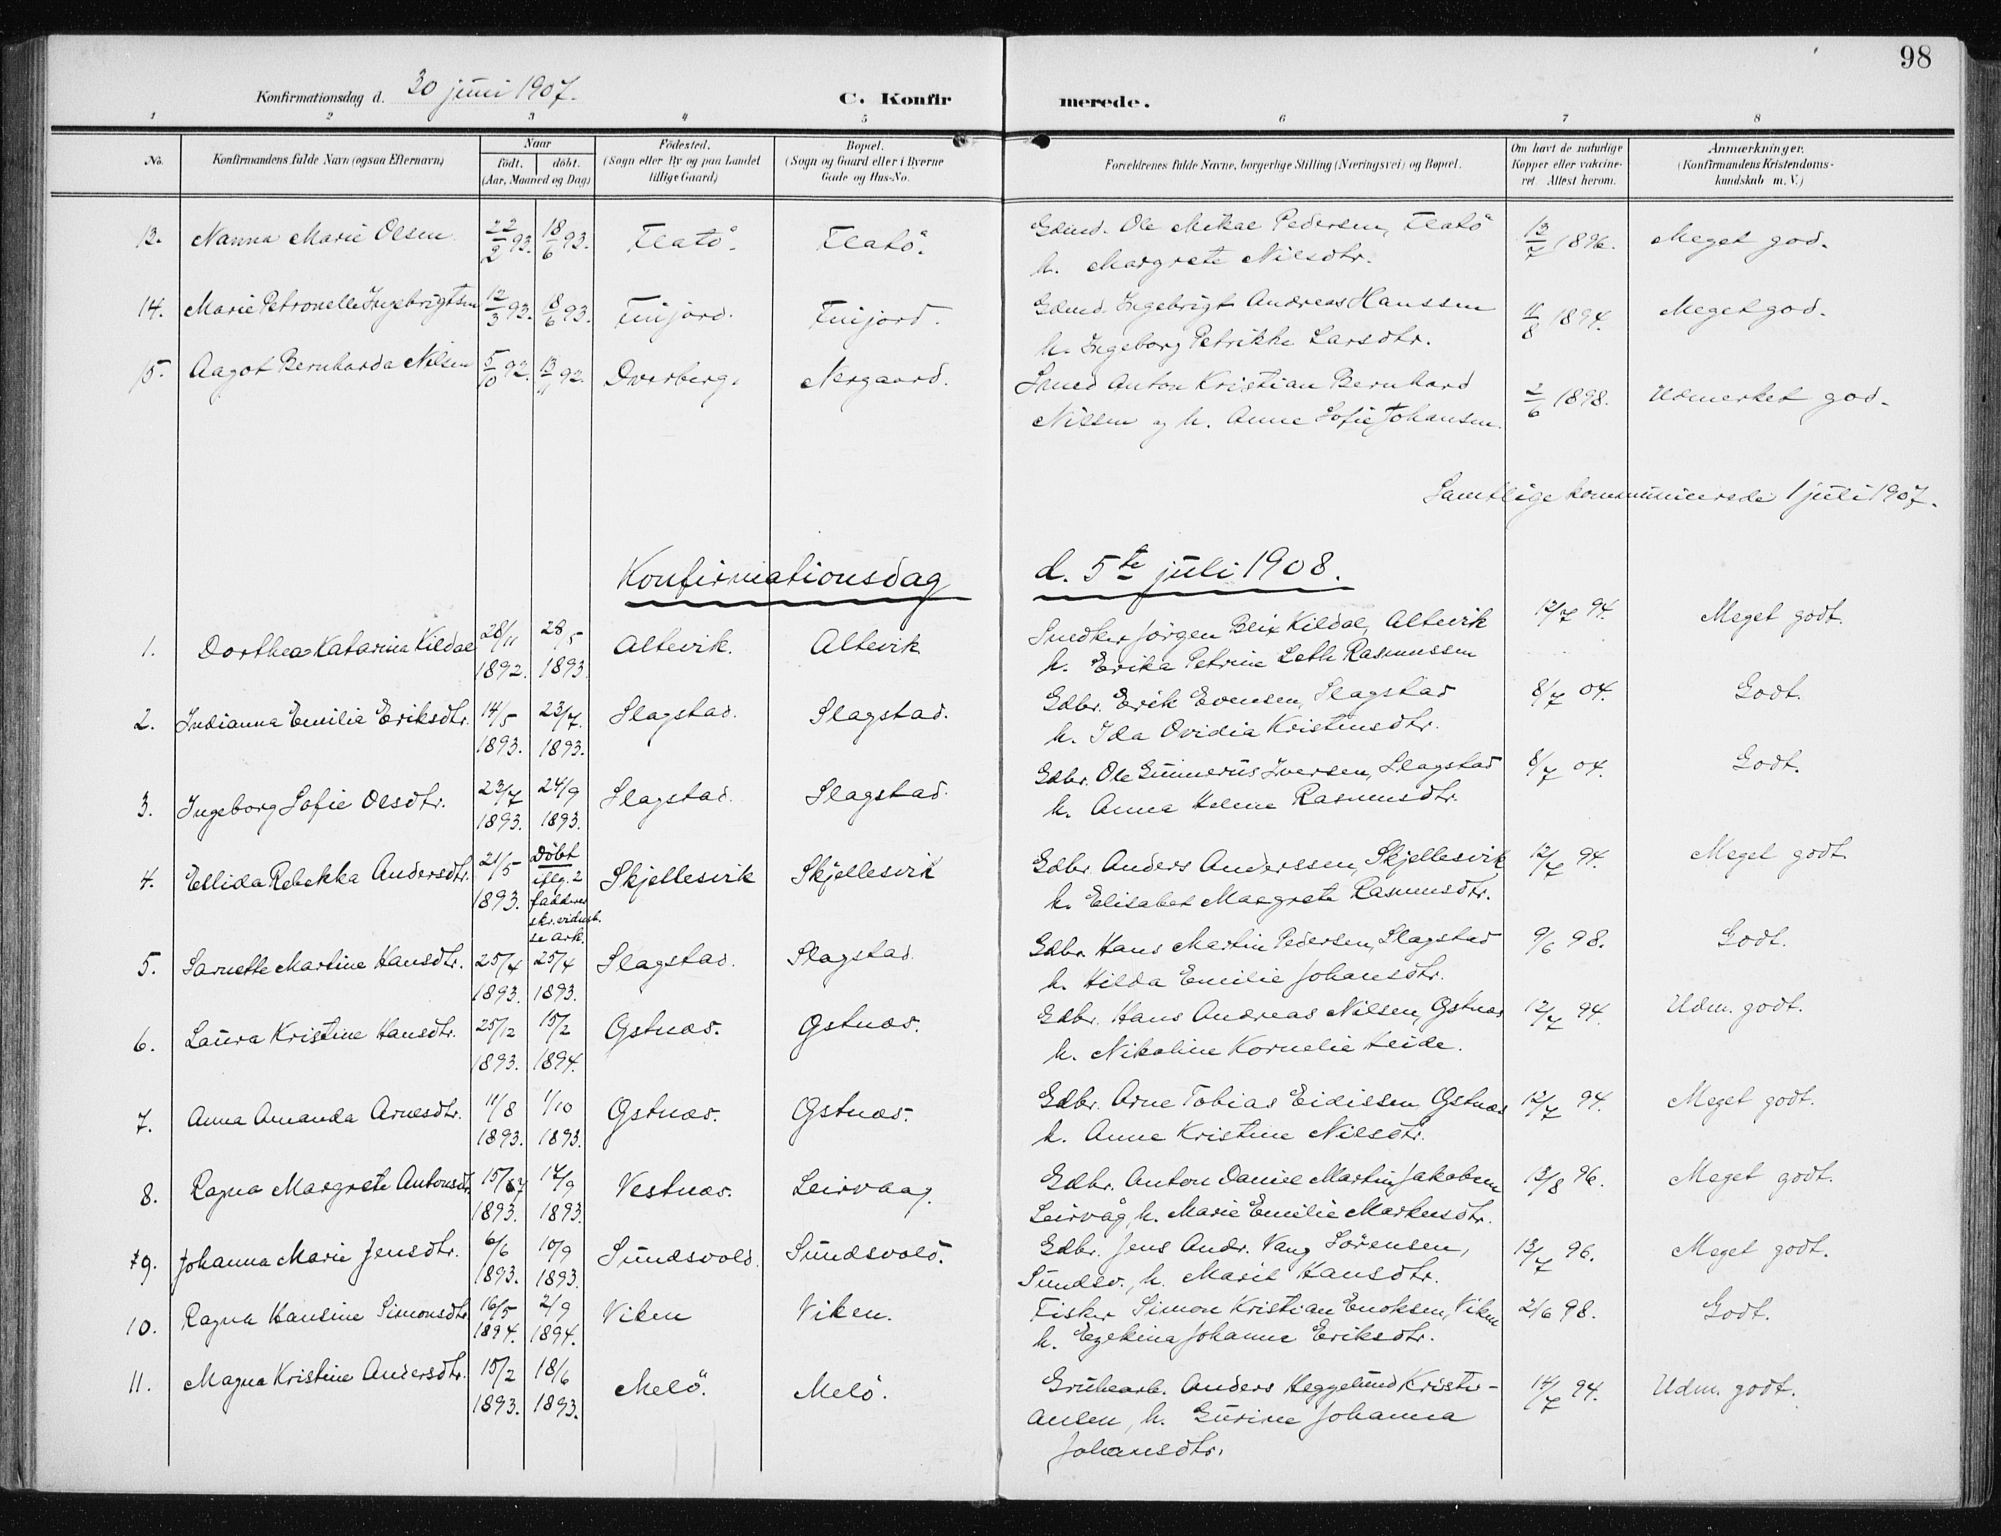 98
Konfirmationsdag d. 30 juni 1907.
C. Konfirmerede.
1 2 3 4 5 6 7 8
No. Konfirmandens fulde Navn (ogsaa Efternavn) Naar født. døbt. (Aar, Maaned og Dag) Fødested. (Sogn eller By og paa Landet tillige Gaard) Bopæl. (Sogn og Gaard eller i Byerne Gade og Hus-No. Forældrenes fulde Navne, borgerlige Stilling (Næringsvei) og Bopæl. Om havt de naturlige Kopper eller vaccineret. Attest herom. Anmærkninger. (Konfirmandens Kristendomskundskab m. V.)
13. Nanna Marie Olsen 22/2 93. 18/6 93. Flatö. Flatö. Gdmd. Ole Mikal Pedersen, Flatö 13/7 1896. Meget god.
h. Margrete Nilsdtr.
14. Marie Petronelle Ingebrigtsen 12/3 93. 8/6 93. Finjord. Finjord. Gdmd. Ingebrigt Andreas Hanssen 11/8 1894. Meget god.
h. Ingeborg Petrikke Larsdtr.
15. Aagot Bernharda Nilsen 5/10 92. 13/11 92. Dverberg. Nergaard. Smed Anton Kristian Bernhard 2/6 1898. Udmerket god.
Nilsen og h. Anne Sofie Johansen.
Samtlige kommunicerede 1 juli 1907.
Konfirmationsdag d. 5te juli 1908.
1. Dorthea Katarina Kildal 28/11 1892. 28/5 1893. Altevik. Altevik Snedker Jörgen Blix Kildal, Altevik 12/7 94. Meget godt.
h. Erika Petrine Leth Rasmussen
2. Indianna Emilie Eriksdtr. 14/5 1893. 23/7. 1893. Slagstad. Slagstad. Gdbr. Erik Evensen, Slagstad 8/7 04. Godt.
h. Ida Ovidia Kristensdtr.
3. Ingeborg Sofie Olsdtr. 23/7 1893. 24/9 1893. Slagstad. Slagstad. Gdbr. Ole Gunnerus Iversen, Slagstad 8/7 04. Godt.
h. Anna Helene Rasmusdtr.
4. Ellida Rebekka Andersdtr. 21/5 1893. Döbt iflg. 2 fadderes skr. vidnesb. se ark. Skjellesvik Skjellesvik Gdbr. Anders Anderssen, Skjellesvik 12/7 94. Meget godt.
h. Elisabet Margrete Rasmusdtr.
5. Sarnette Martine Hansdtr. 25/4 1893. 25/4 1893. Slagstad. Slagstad. Gdbr. Hans Martin Pedersen, Slagstad 9/6 98. Godt.
h. Hilda Emilie Johansdtr.
6. Laura Kristine Hansdtr. 25/12 1893. 15/2 1894. Gstnæs. Gstnæs. Gdbr. Hans Andreas Nilsen, Gstnæs 12/7 94. Udm. godt.
h. Nikoline Kornelie Leide.
7. Anna Amanda Arnesdtr. 11/8 1893. 1/10 1893. Gstnæs. Gstnæs. Gdbr. Arne Tobias Eidissen Gstnæs 12/7 94. Meget godt.
h. Anne Kristine Nilsdtr.
8. Ragna Margrete Antonsdtr. 15/7 1893. 17/9 1893. Vestnæs. Leirvaag. Gdbr. Anton Daniel Martin Jakobsen 13/8 96. Meget godt.
Leirvåg, h. Marie Emilie Markusdtr.
9. Johanna Marie Jensdtr. 6/6 1893. 10/9 1893. Sundsvold. Sundsvold. Gdbr. Jens Andr. Vang Sörensen, 13/7 96. Meget godt.
Sundsv., h. Marit Hansdtr.
10. Ragna Hansine Simonsdtr. 16/5 1894. 2/9 1894. Viken Viken. Fisker Simon Kristian Enoksen, Viken 2/6 98. Godt.
h. Ezekina Johanne Eriksdtr.
11. Magna Kristine Andersdtr. 15/2 1893. 18/6 1893. Melö. Melö. Grubearb. Anders Heggelund Kristi- 14/7 94. Udm. godt.
ansen, h. Gurine Johanna
Johansdtr.